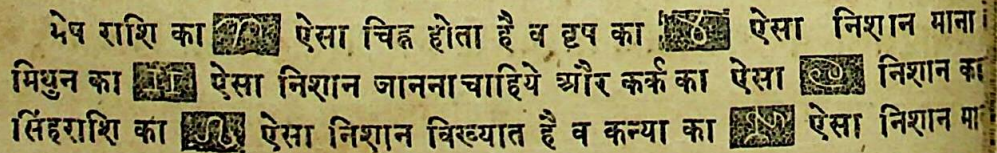 मेष राशि का ♈ ऐसा चिह्न होता है व वृष का ♉ ऐसा निशान माना
मिथुन का ♊ ऐसा निशान जानना चाहिये और कर्क का ऐसा ♋ निशान का
सिंहराशि का ♌ ऐसा निशान विख्यात है व कन्या का ♍ ऐसा निशान मा